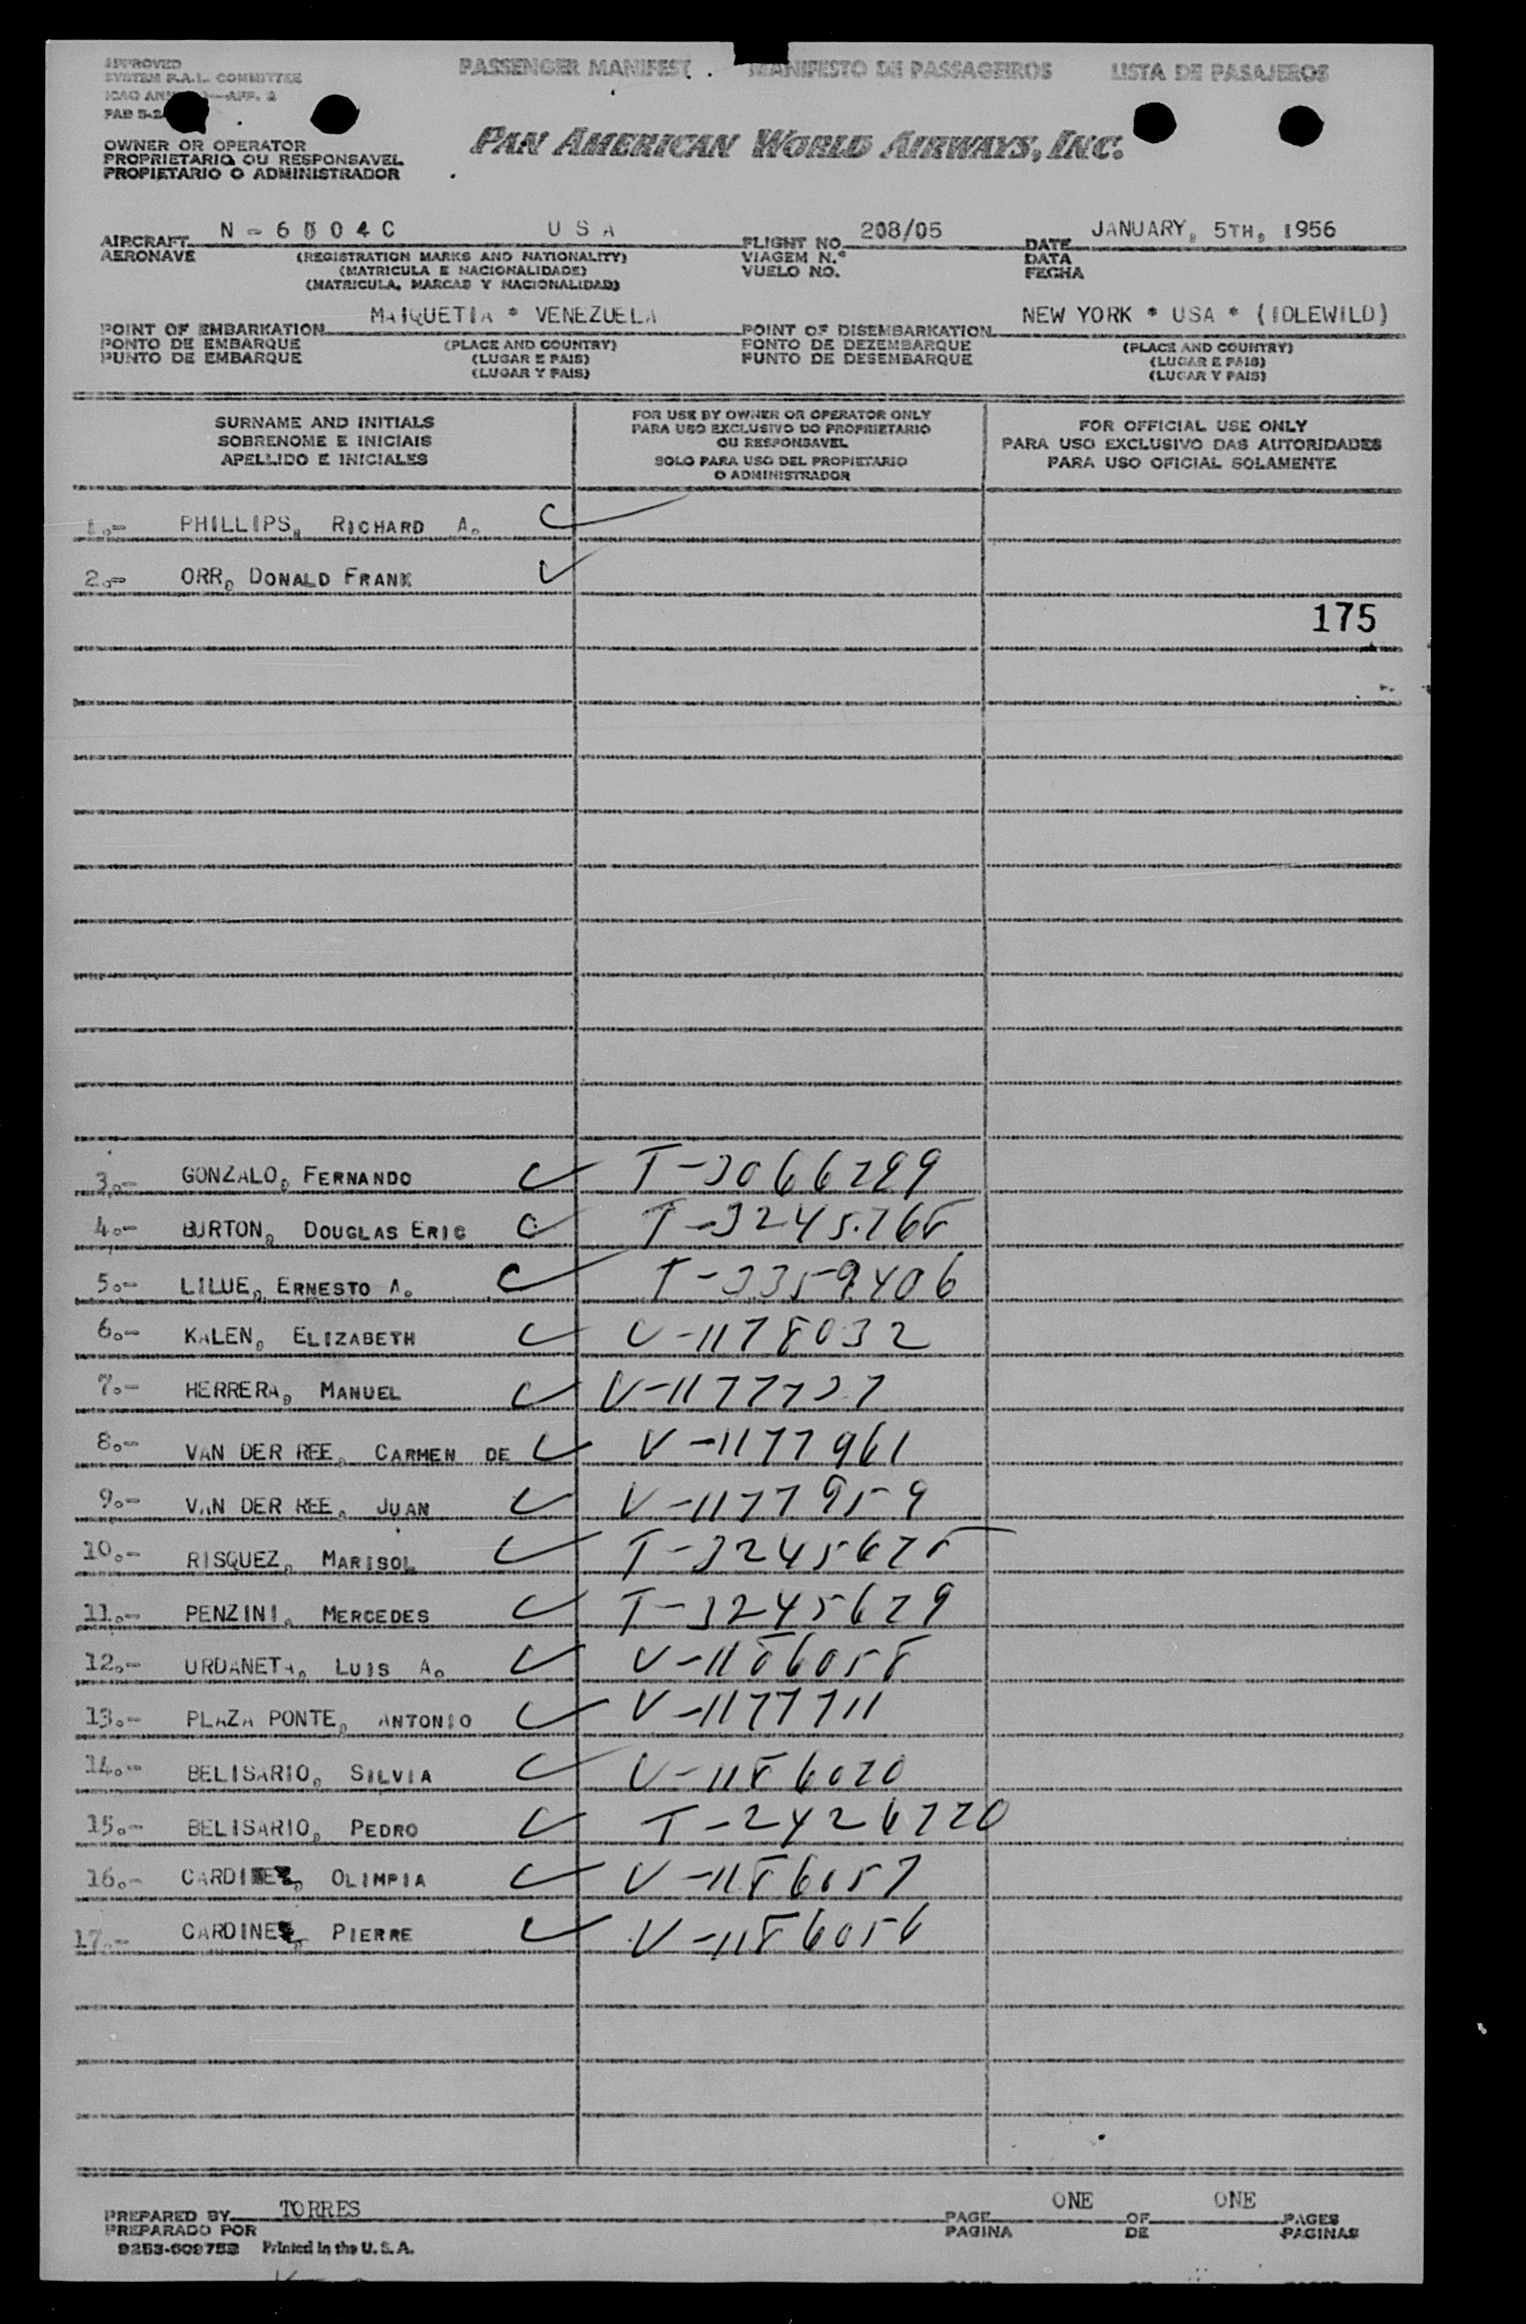 APPROVED
SYSTEM F.A.L. COMMITTEE
ICAO
PASSENGER MANIFEST . MANIFESTO DE PASSAGEIROS LISTA DE PASAJEROS
OWNER OR OPERATOR
PROPRIETARIO OU RESPONSAVEL
PROPIETARIO O ADMINISTRADOR
PAN AMERICAN WORLD AIRWAYS, INC.
AIRCRAFT N - 6 5 0 4 C U S A FLIGHT NO. 208/05 DATE JANUARY, 5TH, 1956
AERONAVE (REGISTRATION MARKS AND NATIONALITY) VIAGEM N.° DATA
(MATRICULA E NACIONALIDADE) VUELO NO. FECHA
(MATRICULA, MARCAS Y NACIONALIDAD)
POINT OF EMBARKATION MAIQUETIA * VENEZUELA POINT OF DISEMBARKATION NEW YORK * USA * (IDLEWILD)
PONTO DE EMBARQUE (PLACE AND COUNTRY) PONTO DE DEZEMBARQUE (PLACE AND COUNTRY)
PUNTO DE EMBARQUE (LUGAR E PAIS) PUNTO DE DESEMBARQUE (LUGAR E PAIS)
(LUGAR Y PAIS) (LUGAR Y PAIS)
SURNAME AND INITIALS
SOBRENOME E INICIAIS
APELLIDO E INICIALES
FOR USE BY OWNER OR OPERATOR ONLY
PARA USO EXCLUSIVO DO PROPRIETARIO
OU RESPONSAVEL
SOLO PARA USO DEL PROPIETARIO
O ADMINISTRADOR
FOR OFFICIAL USE ONLY
PARA USO EXCLUSIVO DAS AUTORIDADES
PARA USO OFICIAL SOLAMENTE
1.- PHILLIPS, RICHARD A.
2.- ORR, DONALD FRANK
175
3.- GONZALO, FERNANDO T-3066299
4.- BURTON, DOUGLAS ERIC T-3245768
5.- LILUE, ERNESTO A. T-3359406
6.- KALEN, ELIZABETH V-1178032
7.- HERRERA, MANUEL V-1177737
8.- VAN DER REE, CARMEN DE V-1177961
9.- VAN DER REE, JUAN V-1177959
10.- RISQUEZ, MARISOL T-3245678
11.- PENZINI, MERCEDES T-3245679
12.- URDANETA, LUIS A. V-1186058
13.- PLAZA PONTE, ANTONIO V-1177711
14.- BELISARIO, SILVIA V-1186020
15.- BELISARIO, PEDRO T-2426720
16.- OLIMPIA V-1186057
17.- PIERRE V-1186056
PREPARED BY TORRES PAGE ONE OF ONE PAGES
PREPARADO POR PAGINA DE PAGINAS
9253-609752 Printed in the U.S.A.